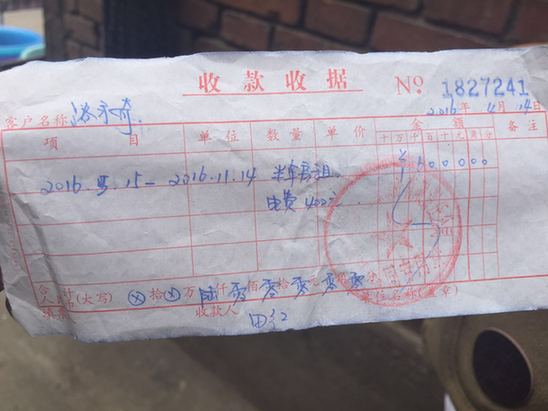 收款收据 No 1827241
2016年 4月 14日
客户名称
项目 单位 数量 单价 金额 备注
十万千百十元角分
2016.5.15-2016.11.14 半年房租 ¥600000
电费400元
合计人民币(大写) ⊗拾⊗万陆仟零佰零拾零元零角零分
填票 收款人 单位名称(盖章)